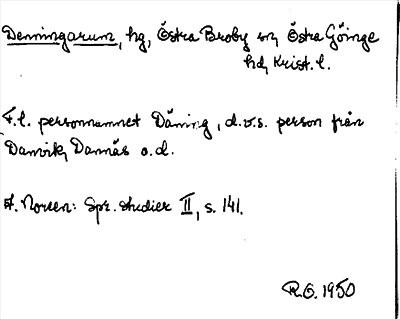 Denningarum, hg, Östra Broby sn, Östra Göinge
hd, Krist. l.
F.l. personnamnet Däning, d.v.s. person från
Danvik, Dannäs o.d.
A. Noreen: Spr. studier II, s. 141.
R.G. 1950